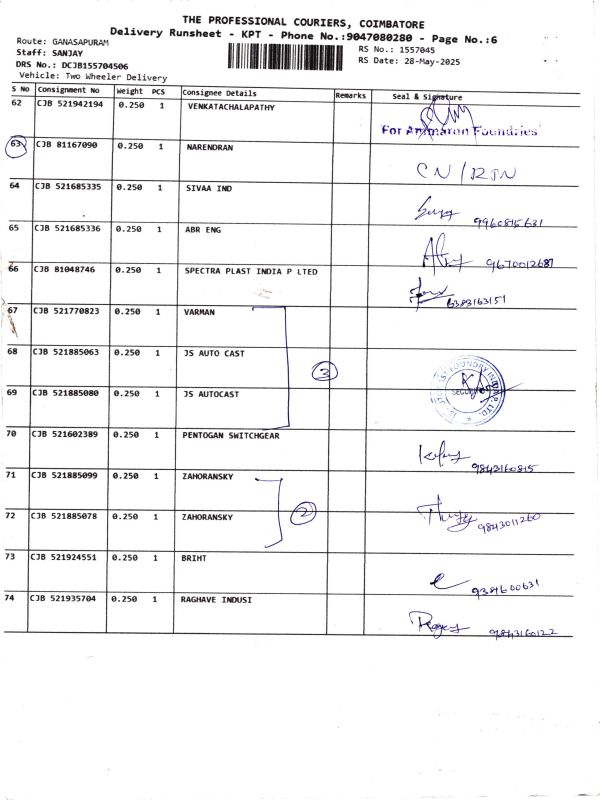 THE PROFESSIONAL COURIERS, COIMBATORE
Delivery Runsheet - KPT - Phone No.:9047080280 - Page No.:6
Route: GANASAPURAM
RS No.: 1557045
Staff: SANJAY
RS Date: 28-May-2025
DRS No.: DCJB155704506
Vehicle: Two Wheeler Delivery
S No Consignment No Weight PCS Consignee Details Remarks Seal & Signature
62 CJB 521942194 0.250 1 VENKATACHALAPATHY
For Foundries
63 CJB 81167090 0.250 1 NARENDRAN CN/RTN
64 CJB 521685335 0.250 1 SIVAA IND 9960815631
65 CJB 521685336 0.250 1 ABR ENG 9670012687
66 CJB 81048746 0.250 1 SPECTRA PLAST INDIA P LTED 6383163151
67 CJB 521770823 0.250 1 VARMAN
68 CJB 521885063 0.250 1 JS AUTO CAST 3
69 CJB 521885080 0.250 1 JS AUTOCAST
70 CJB 521602389 0.250 1 PENTOGAN SWITCHGEAR 9842160815
71 CJB 521885099 0.250 1 ZAHORANSKY
72 CJB 521885078 0.250 1 ZAHORANSKY 2 9843011260
73 CJB 521924551 0.250 1 BRIHT 9384600631
74 CJB 521935704 0.250 1 RAGHAVE INDUSI 9843160122